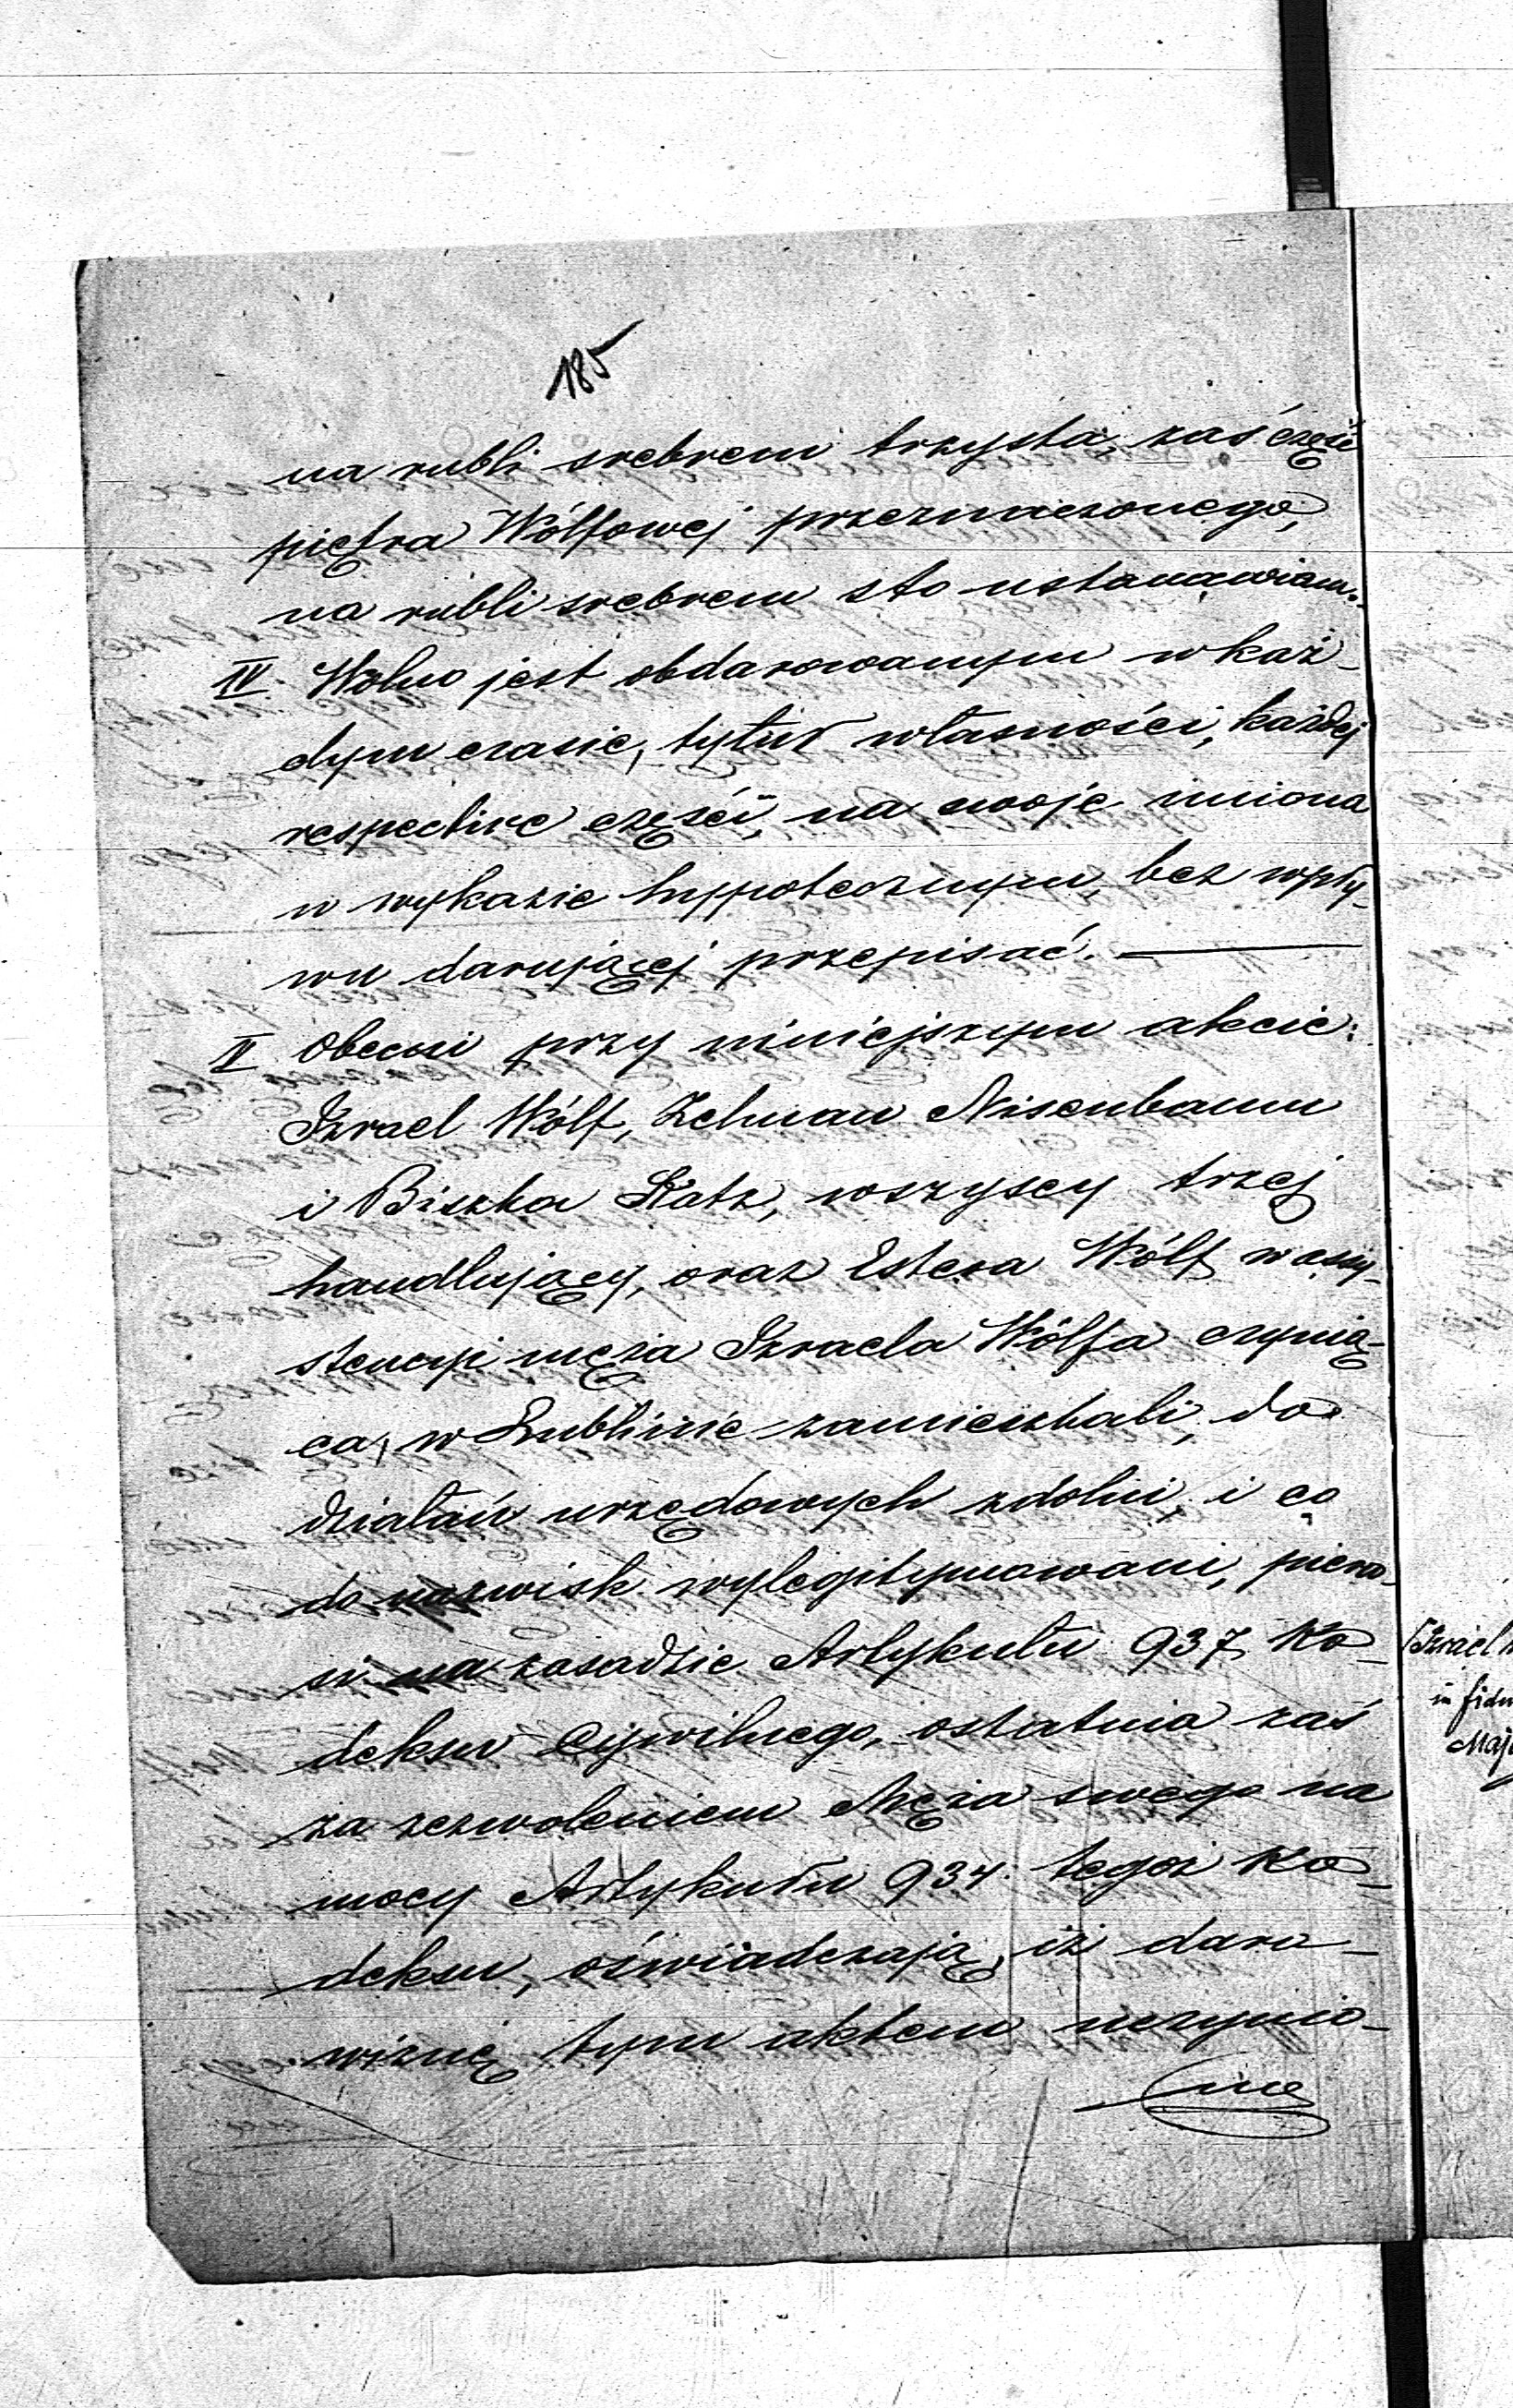 185
na rubli srebrem trzysta, zaś część
piętra Wólfowej przeznaczonego,
na rubli srebrem sto ustanawiam.
IV. Wolno jest obdarowanym w każ-
dym czasie, tytuł własności, każdej
respective części, na swoje imiona
w wykazie hypotecznym, bez wpły-
wu darującej przepisać.
V Obecni przy niniejszym akcie:
Izrael Wólf, Zelman Nisenbaum
i Biszka Katz, wszyscy trzej
handlujący, oraz Estera Wólf w assy-
stencyi męża Izraela Wólfa czynią-
ca, w Lublinie zamieszkali, do
działań urzędowych zdolni, i co
do nazwisk wylegitymowani, pierw-
si na zasadzie Artykułu 937 Ko-
deksu Cywilnego, ostatnia zaś
za zezwoleniem Męża swego na
mocy Artykułu 934. tegoż Ko-
deksu, oświadczają, iż daro-
wiznę tym aktem uczynio-
ną
Izrael
in